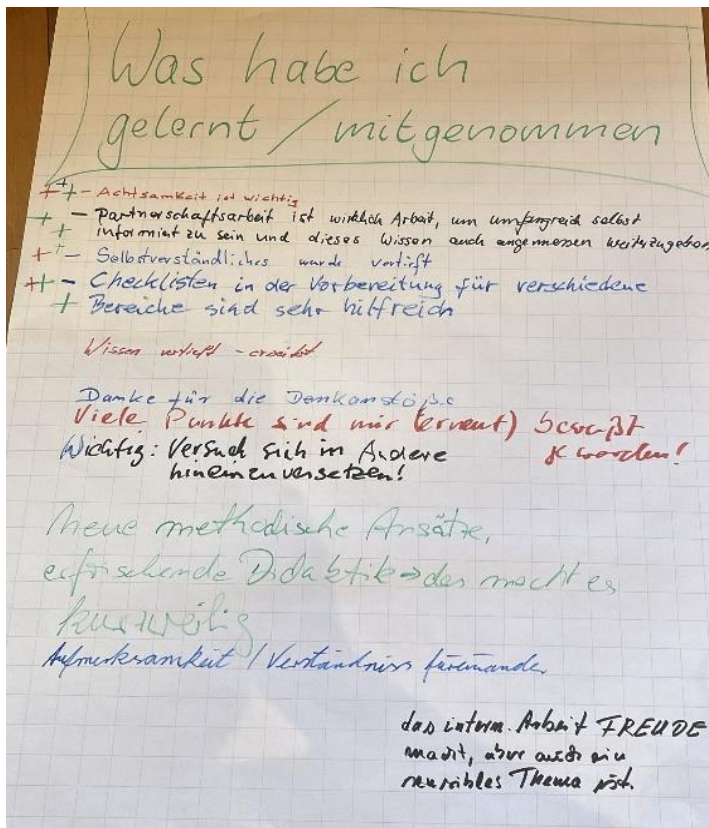 Was habe ich
gelernt / mitgenommen
++ - Achtsamkeit ist wichtig
+ - Partnerschaftsarbeit ist wirklich Arbeit, um umfangreich selbst
+ informiert zu sein und dieses Wissen auch angemessen weiterzugeben
++ - Selbstverständliches wurde vertieft
++ - Checklisten in der Vorbereitung für verschiedene
+ Bereiche sind sehr hilfreich
Wissen vertieft - erweitert
Danke für die Denkanstöße
Viele Punkte sind mir (erneut) bewußt
geworden!
Wichtig: Versuch sich in Andere
hineinzuversetzen!
Neue methodische Ansätze,
erfrischende Didaktik → das macht es
kurzweilig
Aufmerksamkeit / Verständniss füreinander
das intern. Arbeit FREUDE
macht, aber auch ein
sensibles Thema ist.